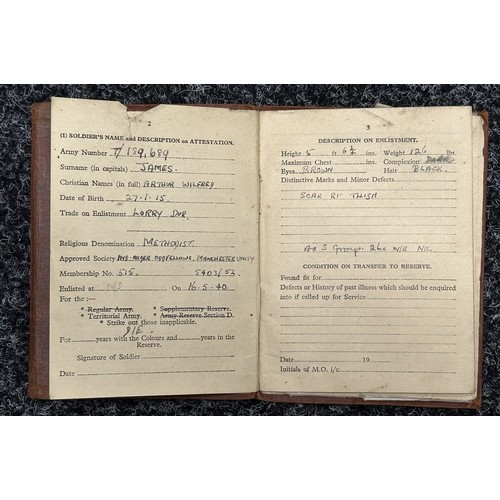 2
(1) SOLDIER'S NAME and DESCRIPTION on ATTESTATION.
Army Number T/189,689
Surname (in capitals) JAMES.
Christian Names (in full) ARTHUR WILFRED
Date of Birth 27.1.15.
Trade on Enlistment LORRY DVR.
Religious Denomination METHODIST.
Approved Society ODDFELLOWS, MANCHESTER UNITY
Membership No. 515. 5403/53.
Enlisted at On 16.5.40.
For the :—
* Regular Army. * Supplementary Reserve.
* Territorial Army. * Army Reserve Section D.
* Strike out those inapplicable.
For years with the Colours and years in the
Reserve.
Signature of Soldier
Date
3
DESCRIPTION ON ENLISTMENT.
Height 5 ft. 6½ ins. Weight 126 lbs.
Maximum Chest ins. Complexion DARK
Eyes BROWN Hair BLACK.
Distinctive Marks and Minor Defects
SCAR RT THIGH
CONDITION ON TRANSFER TO RESERVE.
Found fit for
Defects or History of past illness which should be enquired
into if called up for Service
Date 19
Initials of M.O. i/c.